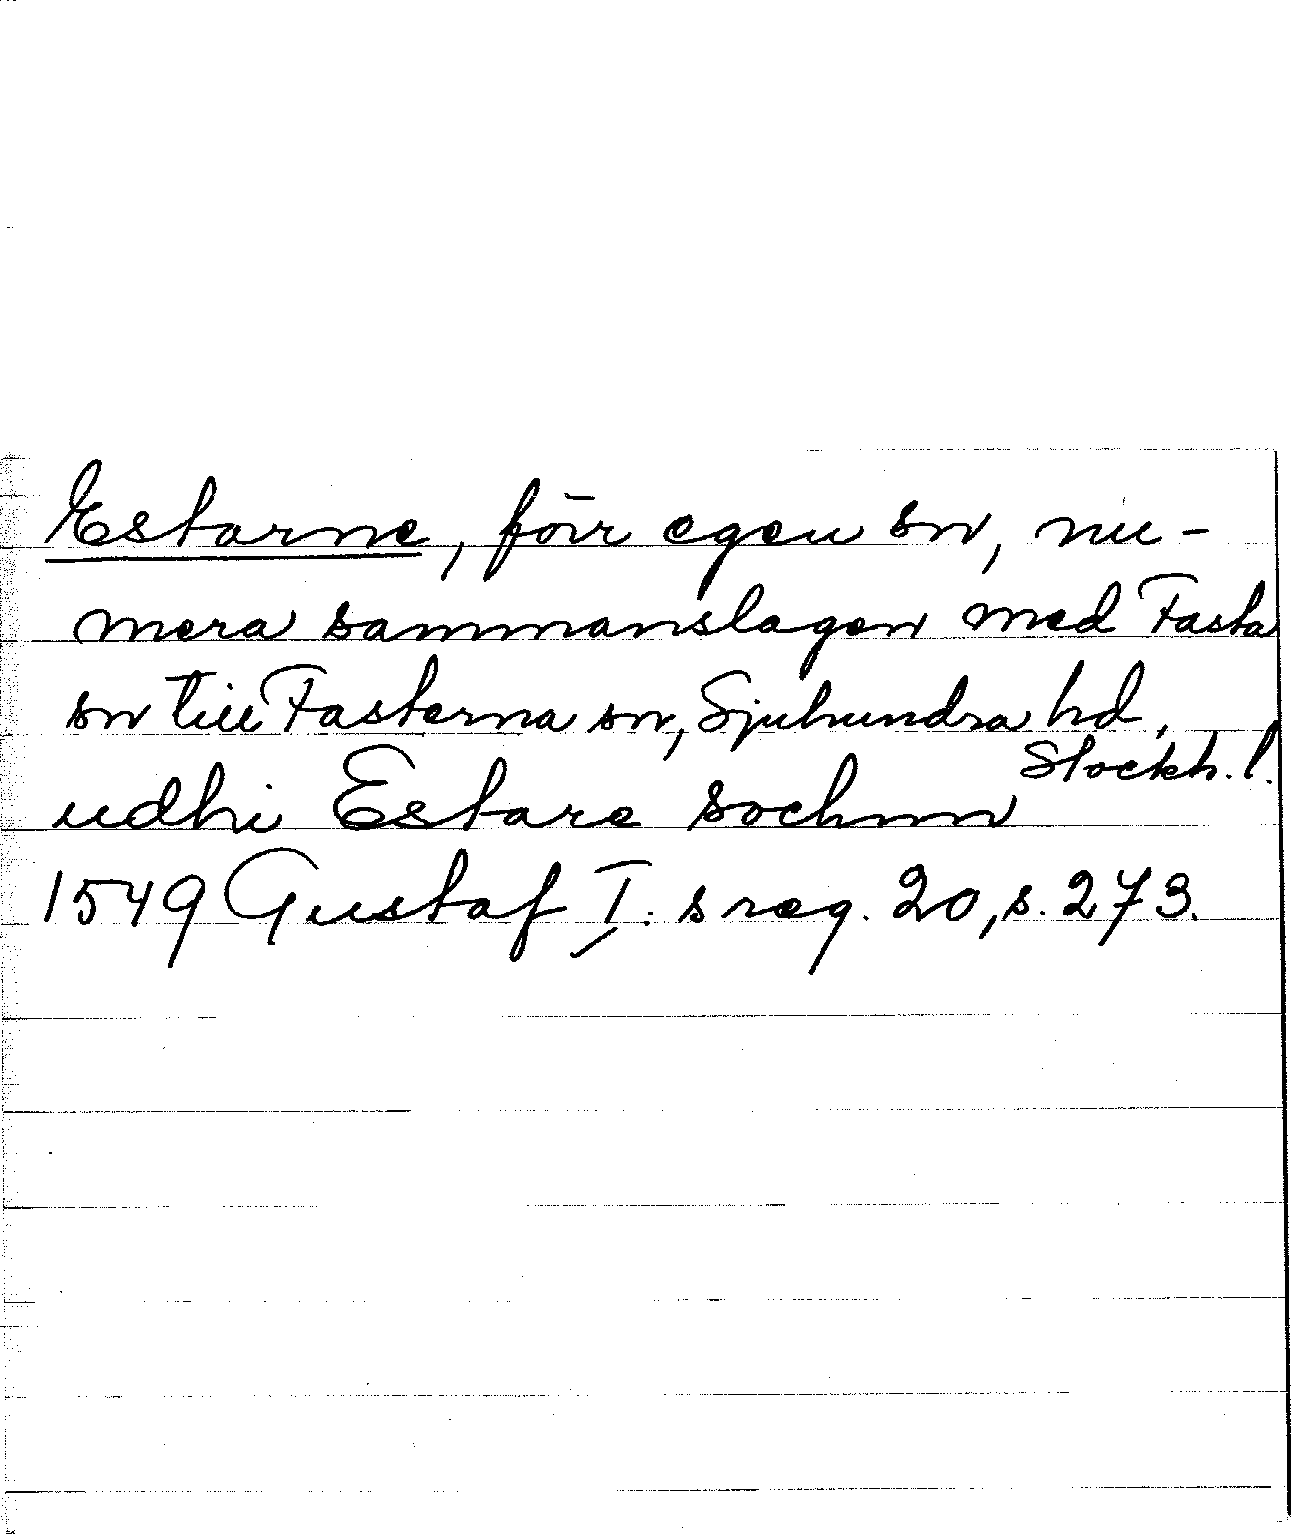 Estarne, förr egen sn, nu-
mera sammanslagen med Fasta
sn till Fasterna sn, Sjuhundra hd,
Stockh. l.
udhi Estare sochnn
1549 Gustaf I:s reg. 20, s. 273.